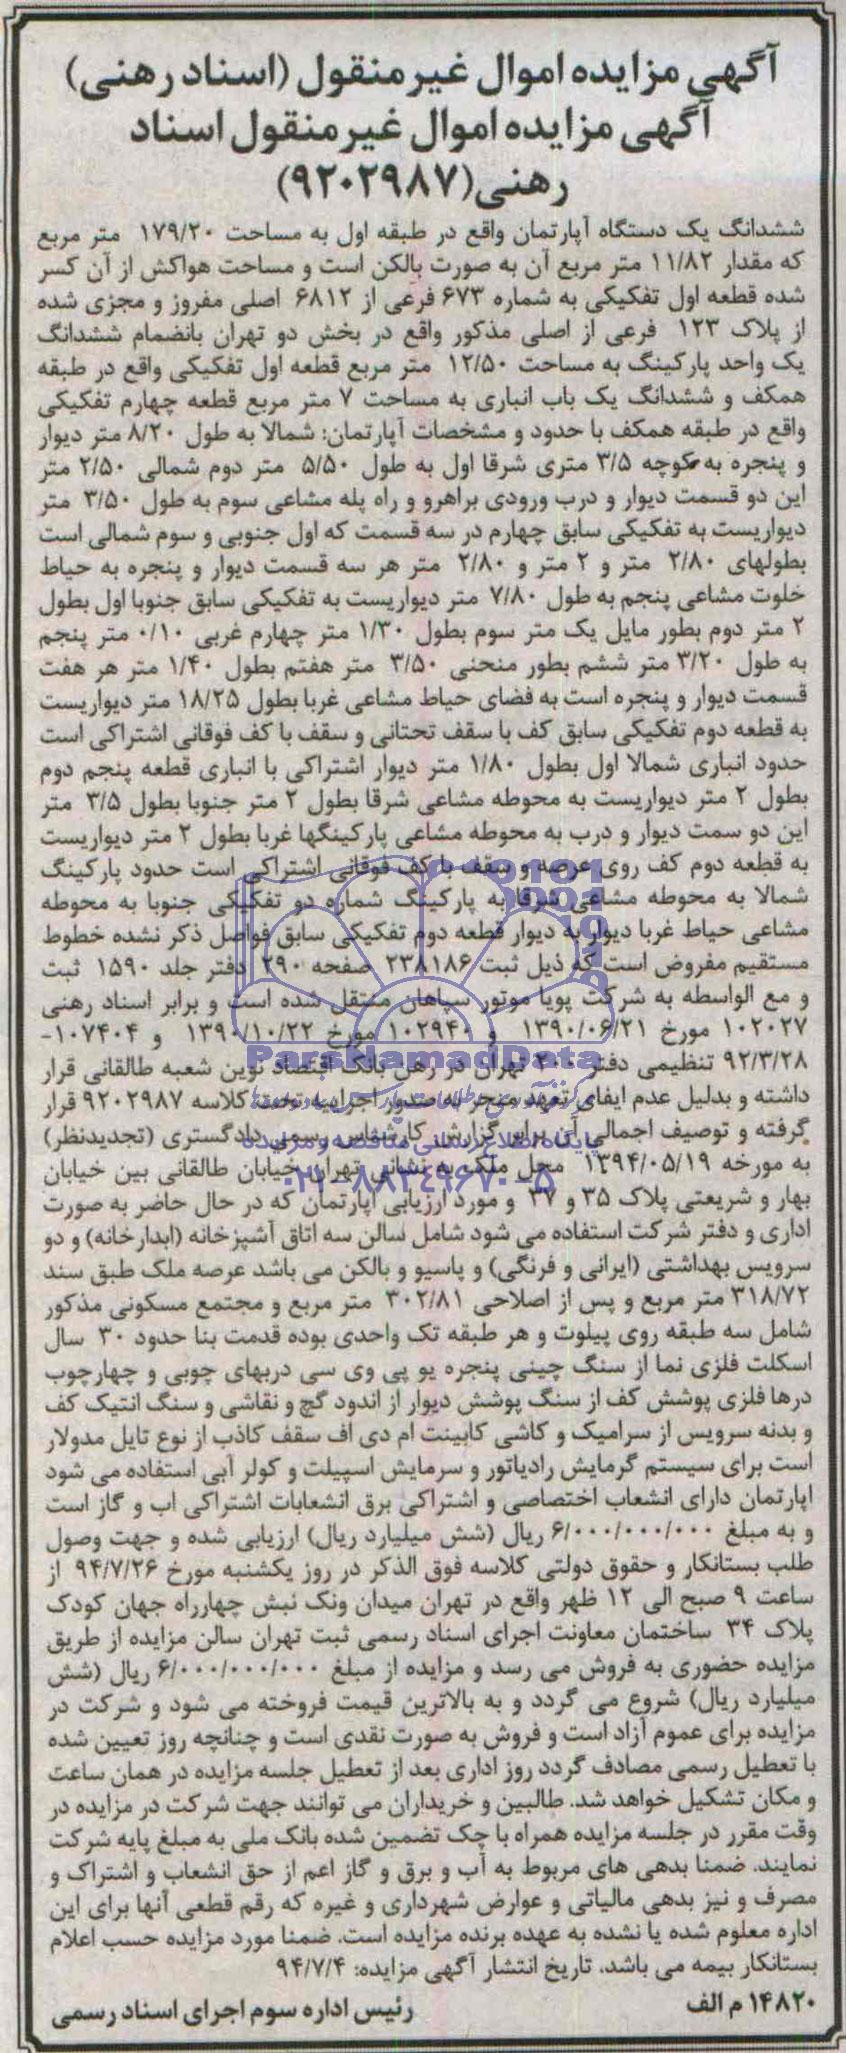 آگهی مزایده اموال غیرمنقول (اسناد رهنی)
آگهی مزایده اموال غیرمنقول اسناد
رهنی(۹۲۰۲۹۸۷)
ششدانگ یک دستگاه آپارتمان واقع در طبقه اول به مساحت ۱۷۹/۲۰ متر مربع
که مقدار ۱۱/۸۲ متر مربع آن به صورت بالکن است و مساحت هواکش از آن کسر
شده قطعه اول تفکیکی به شماره ۶۷۳ فرعی از ۶۸۱۲ اصلی مفروز و مجزی شده
از پلاک ۱۲۳ فرعی از اصلی مذکور واقع در بخش دو تهران بانضمام ششدانگ
یک واحد پارکینگ به مساحت ۱۲/۵۰ متر مربع قطعه اول تفکیکی واقع در طبقه
همکف و ششدانگ یک باب انباری به مساحت ۷ متر مربع قطعه چهارم تفکیکی
واقع در طبقه همکف با حدود و مشخصات آپارتمان: شمالا به طول ۸/۲۰ متر دیوار
و پنجره به کوچه ۳/۵ متری شرقا اول به طول ۵/۵۰ متر دوم شمالی ۲/۵۰ متر
این دو قسمت دیوار و درب ورودی براهرو و راه پله مشاعی سوم به طول ۳/۵۰ متر
دیواریست به تفکیکی سابق چهارم در سه قسمت که اول جنوبی و سوم شمالی است
بطولهای ۲/۸۰ متر و ۲ متر و ۲/۸۰ متر هر سه قسمت دیوار و پنجره به حیاط
خلوت مشاعی پنجم به طول ۷/۸۰ متر دیواریست به تفکیکی سابق جنوبا اول بطول
۲ متر دوم بطور مایل یک متر سوم بطول ۱/۳۰ متر چهارم غربی ۰/۱۰ متر پنجم
به طول ۳/۲۰ متر ششم بطور منحنی ۳/۵۰ متر هفتم بطول ۱/۴۰ متر هر هفت
قسمت دیوار و پنجره است به فضای حیاط مشاعی غربا بطول ۱۸/۲۵ متر دیواریست
به قطعه دوم تفکیکی سابق کف با سقف تحتانی و سقف با کف فوقانی اشتراکی است
حدود انباری شمالا اول بطول ۱/۸۰ متر دیوار اشتراکی با انباری قطعه پنجم دوم
بطول ۲ متر دیواریست به محوطه مشاعی شرقا بطول ۲ متر جنوبا بطول ۳/۵ متر
این دو سمت دیوار و درب به محوطه مشاعی پارکینگها غربا بطول ۲ متر دیواریست
به قطعه دوم کف روی عرصه و سقف با کف فوقانی اشتراکی است حدود پارکینگ
شمالا به محوطه مشاعی شرقا به پارکینگ شماره دو تفکیکی جنوبا به محوطه
مشاعی حیاط غربا دیوار به دیوار قطعه دوم تفکیکی سابق فواصل ذکر نشده خطوط
مستقیم مفروض است که ذیل ثبت ۲۳۸۱۸۶ صفحه ۲۹۰ دفتر جلد ۱۵۹۰ ثبت
و مع الواسطه به شرکت پویا موتور سپاهان منتقل شده است و برابر اسناد رهنی
۱۰۲۰۲۷ مورخ ۱۳۹۰/۰۶/۲۱ و ۱۰۲۹۴۰ مورخ ۱۳۹۰/۱۰/۲۲ و ۱۰۷۴۰۴-
۹۲/۳/۲۸ تنظیمی دفتر ۲۰۰ تهران در رهن بانک اقتصاد نوین شعبه طالقانی قرار
داشته و بدلیل عدم ایفای تعهد منجر به صدور اجرائیه تحت کلاسه ۹۲۰۲۹۸۷ قرار
گرفته و توصیف اجمالی آن برابر گزارش کارشناس رسمی دادگستری (تجدیدنظر)
به مورخه ۱۳۹۴/۰۵/۱۹ محل ملک به نشانی تهران خیابان طالقانی بین خیابان
بهار و شریعتی پلاک ۳۵ و ۳۷ و مورد ارزیابی اپارتمان که در حال حاضر به صورت
اداری و دفتر شرکت استفاده می شود شامل سالن سه اتاق آشپزخانه (ابدارخانه) و دو
سرویس بهداشتی (ایرانی و فرنگی) و پاسیو و بالکن می باشد عرصه ملک طبق سند
۳۱۸/۷۲ متر مربع و پس از اصلاحی ۳۰۲/۸۱ متر مربع و مجتمع مسکونی مذکور
شامل سه طبقه روی پیلوت و هر طبقه تک واحدی بوده قدمت بنا حدود ۳۰ سال
اسکلت فلزی نما از سنگ چینی پنجره یو پی وی سی دربهای چوبی و چهارچوب
درها فلزی پوشش کف از سنگ پوشش دیوار از اندود گچ و نقاشی و سنگ انتیک کف
و بدنه سرویس از سرامیک و کاشی کابینت ام دی اف سقف کاذب از نوع تایل مدولار
است برای سیستم گرمایش رادیاتور و سرمایش اسپیلت و کولر آبی استفاده می شود
اپارتمان دارای انشعاب اختصاصی و اشتراکی برق انشعابات اشتراکی اب و گاز است
و به مبلغ ۶/۰۰۰/۰۰۰/۰۰۰ ریال (شش میلیارد ریال) ارزیابی شده و جهت وصول
طلب بستانکار و حقوق دولتی کلاسه فوق الذکر در روز یکشنبه مورخ ۹۴/۷/۲۶ از
ساعت ۹ صبح الی ۱۲ ظهر واقع در تهران میدان ونک نبش چهارراه جهان کودک
پلاک ۳۴ ساختمان معاونت اجرای اسناد رسمی ثبت تهران سالن مزایده از طریق
مزایده حضوری به فروش می رسد و مزایده از مبلغ ۶/۰۰۰/۰۰۰/۰۰۰ ریال (شش
میلیارد ریال) شروع می گردد و به بالاترین قیمت فروخته می شود و شرکت در
مزایده برای عموم آزاد است و فروش به صورت نقدی است و چنانچه روز تعیین شده
با تعطیل رسمی مصادف گردد روز اداری بعد از تعطیل جلسه مزایده در همان ساعت
و مکان تشکیل خواهد شد. طالبین و خریداران می توانند جهت شرکت در مزایده در
وقت مقرر در جلسه مزایده همراه با چک تضمین شده بانک ملی به مبلغ پایه شرکت
نمایند. ضمنا بدهی های مربوط به آب و برق و گاز اعم از حق انشعاب و اشتراک و
مصرف و نیز بدهی مالیاتی و عوارض شهرداری و غیره که رقم قطعی آنها برای این
اداره معلوم شده یا نشده به عهده برنده مزایده است. ضمنا مورد مزایده حسب اعلام
بستانکار بیمه می باشد. تاریخ انتشار آگهی مزایده: ۹۴/۷/۴
۱۴۸۲۰ م الف رئیس اداره سوم اجرای اسناد رسمی
ParsNamadData
پایگاه اطلاع رسانی مناقصه و مزایده
۰۲۱-۸۸۳۴۹۶۷۰-۵